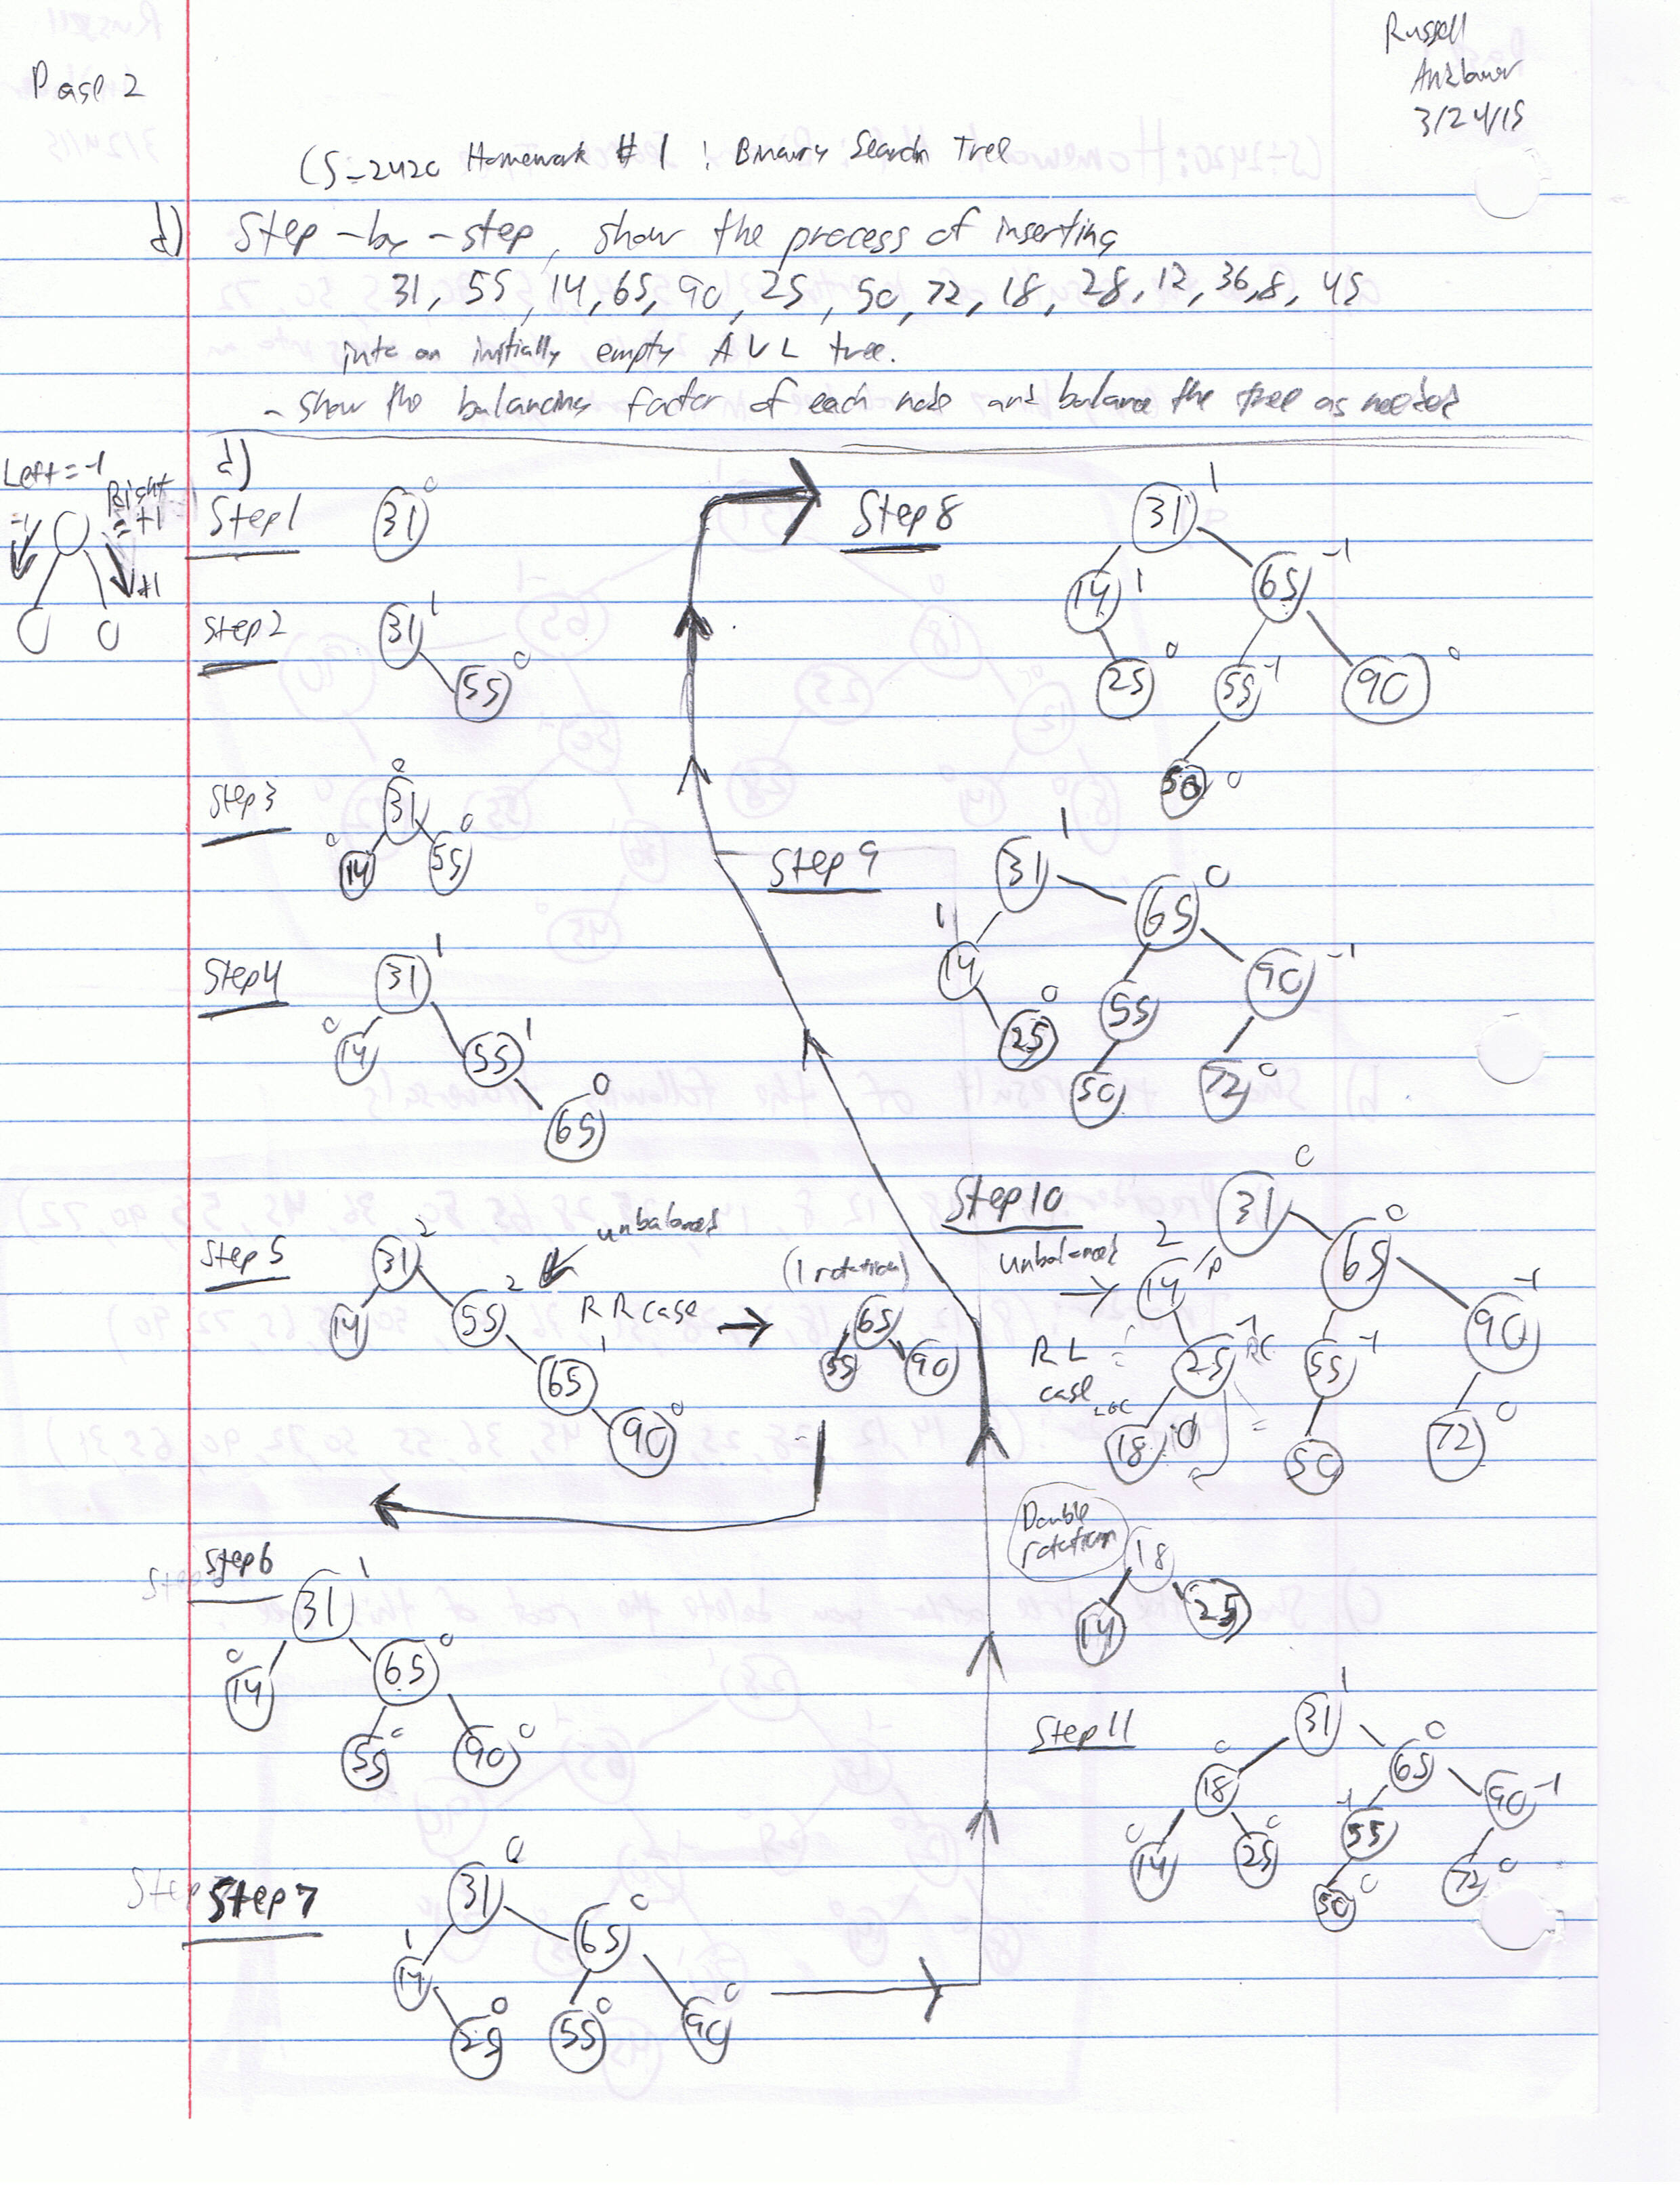 Page 2
Russell
3/24/15
CS-2420 Homework #1 : Binary Search Tree
d) Step-by-step, show the process of inserting
31, 55, 14, 65, 90, 25, 50, 72, 18, 28, 12, 36, 8, 45
into an initially empty AVL tree.
- show the balancing factor of each node and balance the tree as needed
d)
Left = -1
Right = +1
-1
+1
Step 1
31 0
Step 2
31 1
55 0
Step 3
0
31
0 14 55 0
Step 4
31 1
0 14 55 1
65 0
Step 5
31 2 unbalanced
14 55 2 RR case → (1 rotation)
65 1
90 0
65
55 90
Step 6
31 1
0 14 65 0
55 0 90 0
Step 7
31 0
1 14 65 0
25 0 55 0 90 0
Step 8
31 1
14 1 65 -1
25 0 55 -1 90 0
50 0
Step 9
31 1
1 14 65 0
25 0 55 90 -1
50 72 0
Step 10
31 0
unbalanced → 2 14 P 65 0
RL case
25 -1 RC 55 -1 90 -1
18 0 50 72 0
Double rotation
18
14 25
Step 11
31 1
18 0 65 0
0 14 25 0 -1 55 90 -1
50 0 72 0